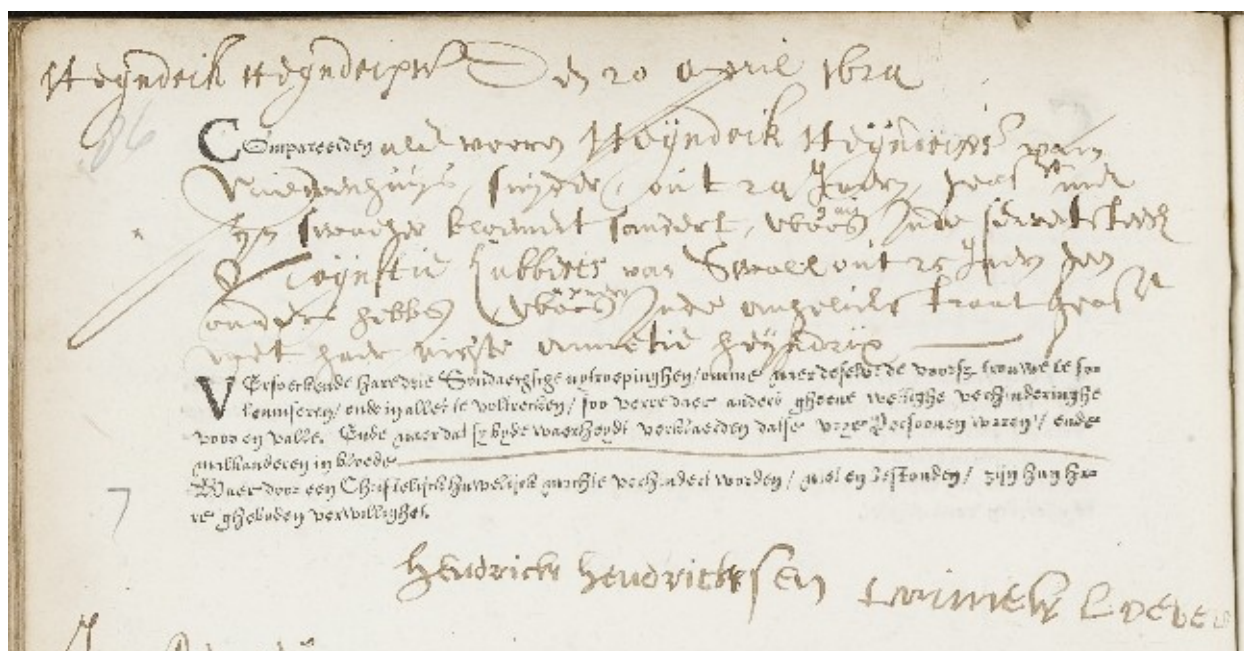 Heijndrik Heijndrixsz Den 20 April 1624
Compareerden als vooren Heijndrik Heijndrixs van
snijder, out 24 Jaren, geas. met
Sijn swager sandert, woon. inde
& Stijntie Lubberts van Swoll out 25 Jaren geen
ouders hebb. woon. inde kraat geas.
met haer nichte Annetie Heijndrix
VErsoeckende hare drie Sondaeghsche uytroepinghen / omme naer deselve de voorsz. trouwe te so-
lemniseren / ende in alles te voltrecken / soo verre daer anders gheene wettighe verhinderinghe
voor en valle. Ende naer dat sy by de waerheydt verklaerden datse vrye Persoonen waren / ende
malkanderen in bloede
Waer door een Christelijck huwelijck mochte verhindert worden / niet en bestonden / zijn hun ha-
re gheboden verwillighet.
Hendrick Hendricksen